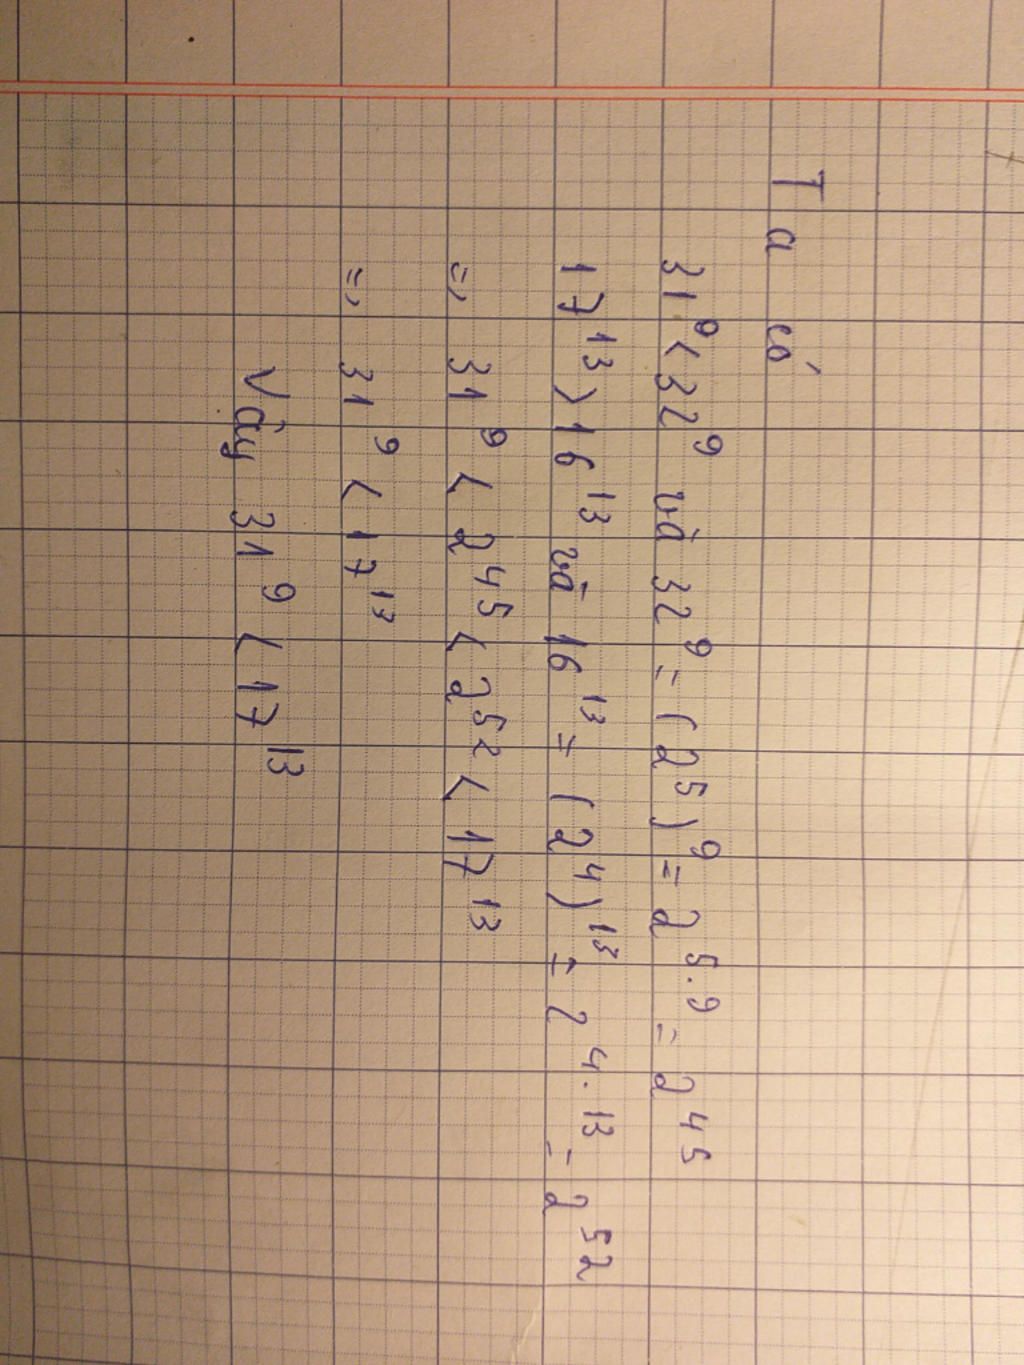 Ta có
31⁹ < 32⁹ và 32⁹ = (2⁵)⁹ = 2⁵·⁹ = 2⁴⁵
17¹³ > 16¹³ và 16¹³ = (2⁴)¹³ = 2⁴·¹³ = 2⁵²
=> 31⁹ < 2⁴⁵ < 2⁵² < 17¹³
=> 31⁹ < 17¹³
Vậy 31⁹ < 17¹³